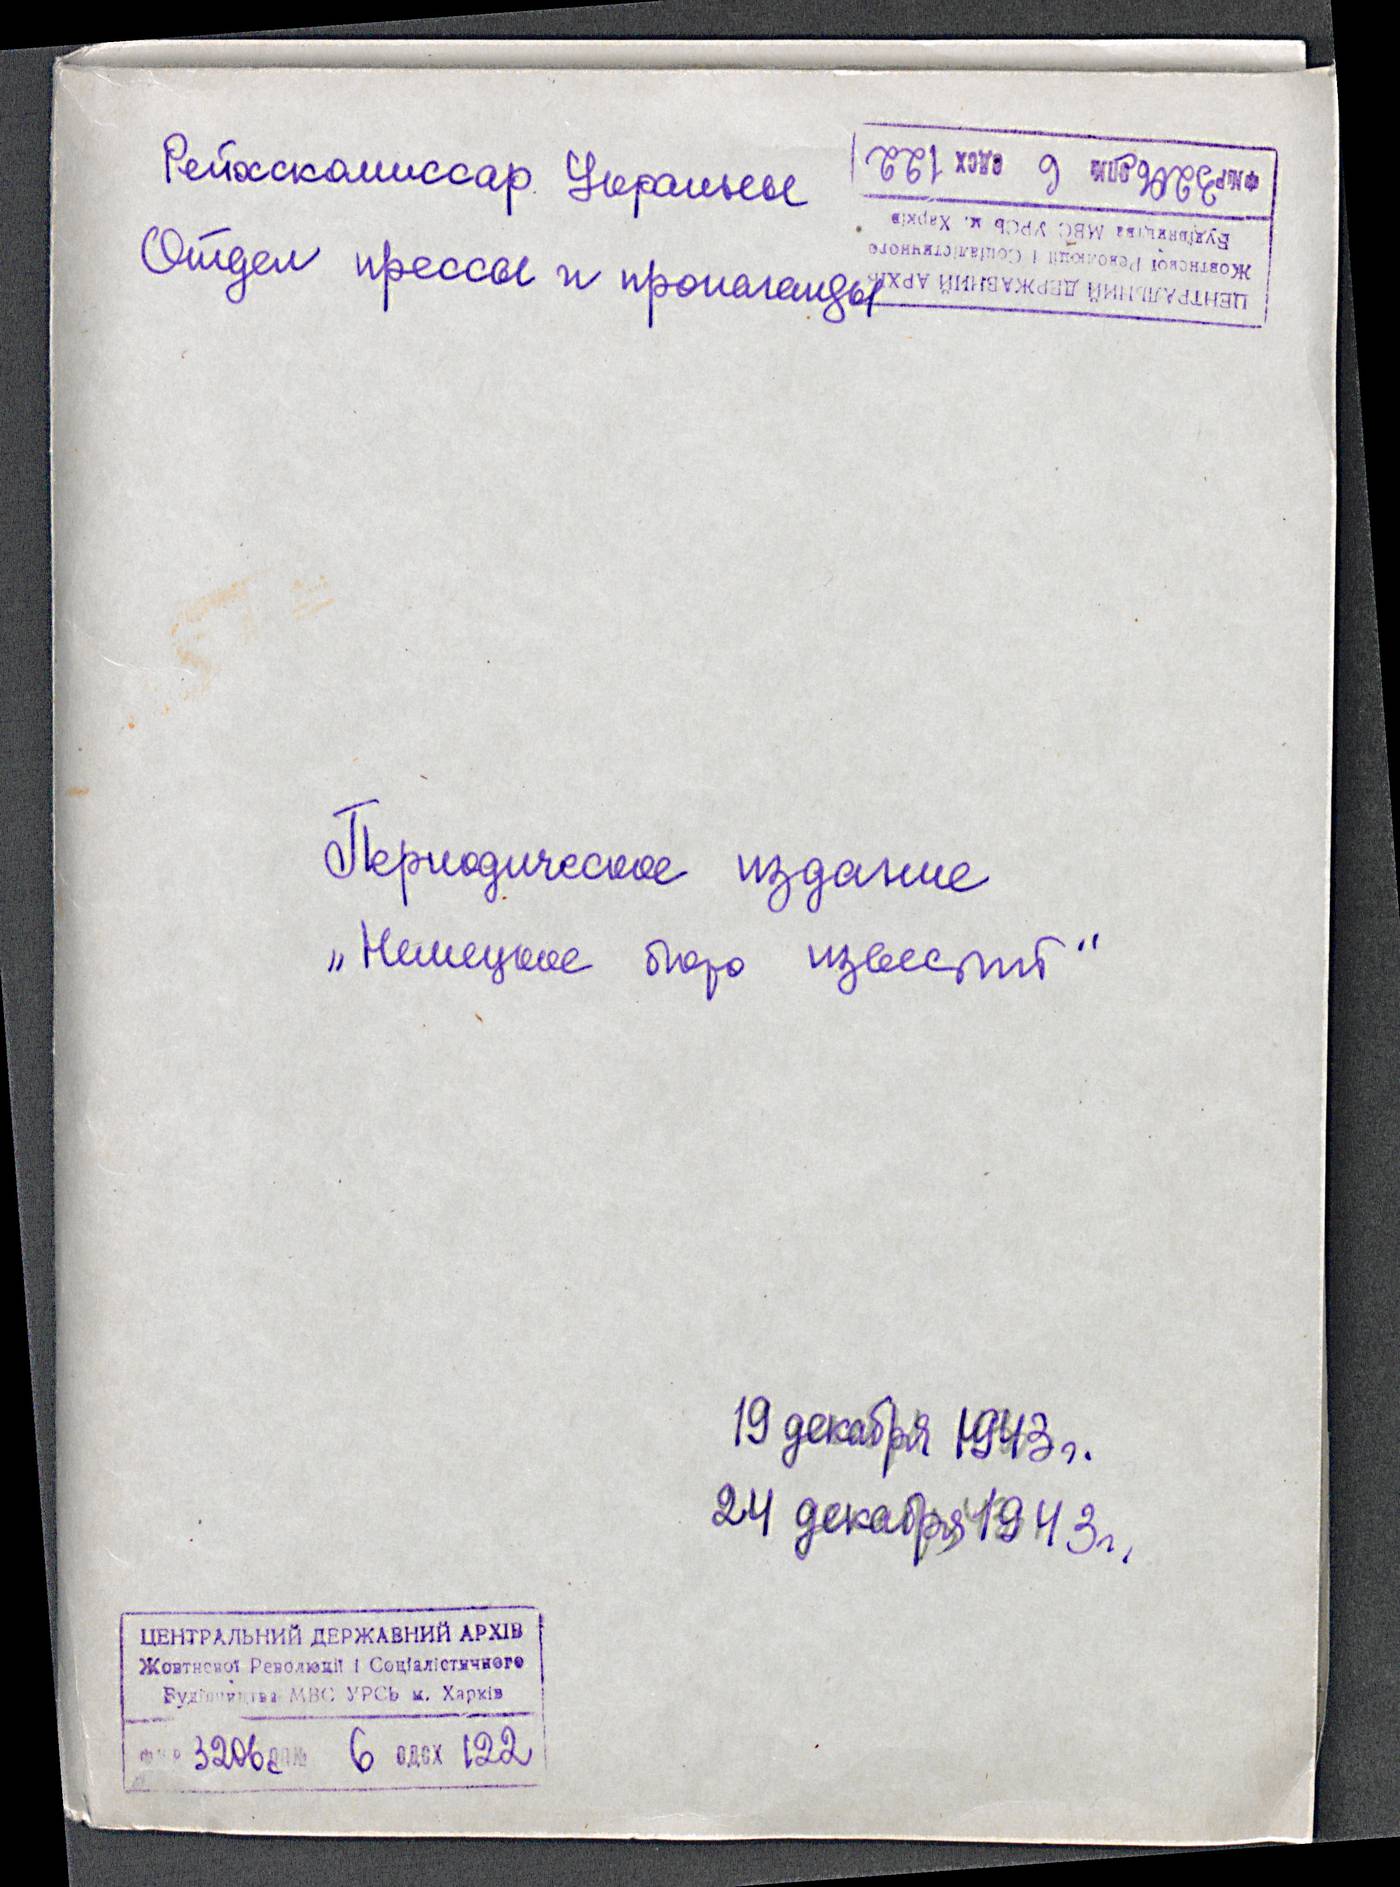 Рейхскомиссар Украины
Отдел прессы и пропаганды
ЦЕНТРАЛЬНИЙ ДЕРЖАВНИЙ АРХІВ
Жовтневої Революції і Соціалістичного
Будівництва МВС УРСЬ м. Харків
Ф№Р 3206 ОП№ 6 ОДСХ 122
Периодическое издание
„Немецкое бюро известий“
19 декабря 1943 г.
24 декабря 1943 г.
ЦЕНТРАЛЬНИЙ ДЕРЖАВНИЙ АРХІВ
Жовтневої Революції і Соціалістичного
Будівництва МВС УРСЬ м. Харків
Ф№Р 3206 ОП№ 6 ОДСХ 122